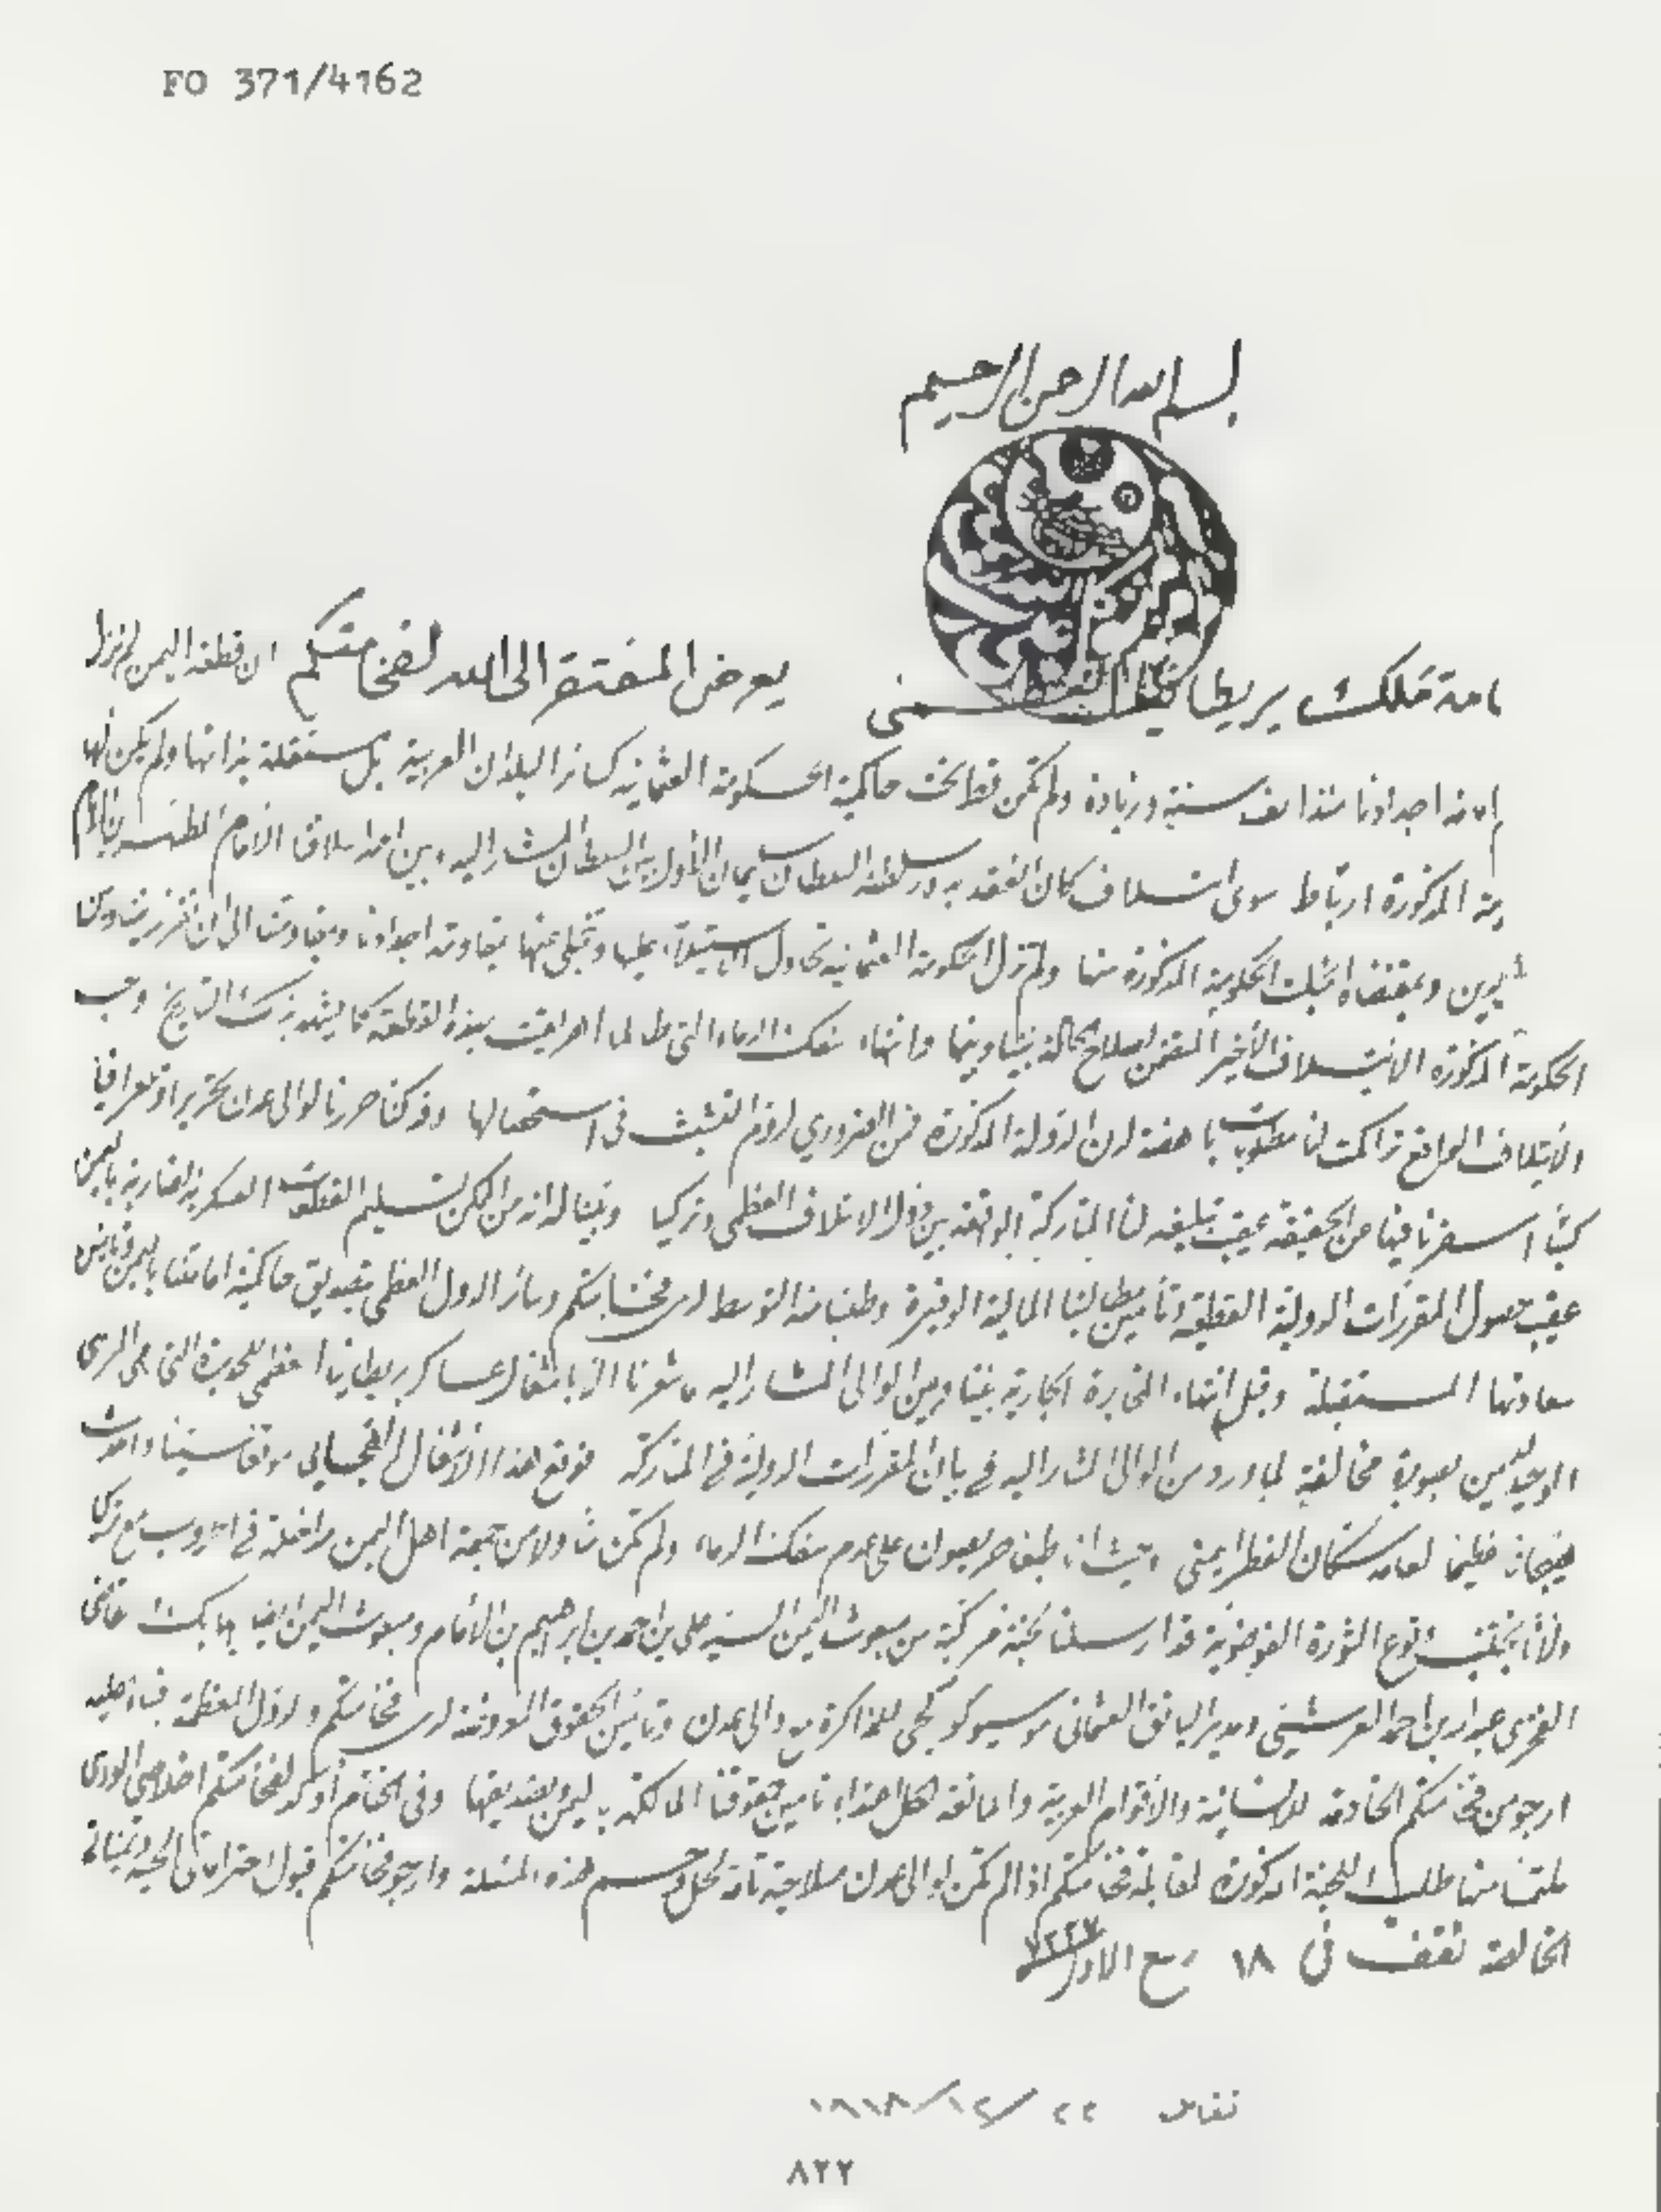 FO 371/4162
بسم الله الرحمن الرحيم
امة ملك بريطانيا العظمى يعرض المفتقر الى الله لفخامتكم ان قطعة اليمن لم تزل
اجدادنا منذ الف سنة وزيادة ولم تكن قط تحت حاكمية الحكومة العثمانية كسائر البلدان العربية بل مستقلة بذاتها ولم يكن لها
المذكورة ارتباط سوى ائتلاف كان انعقد بدور سلطنة السلطان سليمان الأول بين السلطان المشار اليه وبين احد اسلافنا الامام المطهر بن الامام
وبمقتضاه الحكومة المذكورة منها ولم تزل الحكومة العثمانية تحاول الاستيلاء عليها وتجلى عنها بمقاومة اجدادنا ومقاومتنا الى ان تقرر بيننا وبين
الحكومة المذكورة الائتلاف الأخير المتضمن اصلاح الحالة بيننا وبينها وانتهاء سفك الدماء التي طالما اهريقت بهذه القطعة كما يشهد بذلك التاريخ وحسب
الائتلاف الواقع تراكمت لنا مطلوبات باهضة لدى الدولة المذكورة فمن الضروري لزوم التشبث في استحصالها وقد كنا حررنا لوالى عدن تحريرا وتلغرافيا
اسفرنا فيها عن الحقيقة عقيب تبليغه لنا المتاركة الواقعة بين دول الائتلاف العظمى وتركيا وبينا له انه من الممكن تسليم القطعات العسكرية باليمن
عقيب حصول المقررات الدولية القطعية وتأمين مطالبنا المالية الوفيرة وطلبنا منه التوسط لدى فخامتكم وسائر الدول العظمى بتصديق حاكمية امامتنا باليمن وتأمين
سعادتها المستقبلة وقبل انتهاء المخابرة الجارية بيننا وبين الوالى المشار اليه ما شعرنا الا باشغال عساكر بريطانيا العظمى للحديدة التي هي المرسى
الوحيد لليمن بصورة مخالفة لما ورد من الوالى المشار اليه في بيان المقررات الدولية في المتاركة فوقع هذا الاشغال الفجائي موقعا سيئا واحدث
هيجانا عظيما لعامة سكان القطر اليمني وحيث انا طبعا حريصون على عدم سفك الدماء ولم تكن منا ولا من جهة اهل اليمن مداخلة في الحروب مع تركيا
ولأنا نجتنب وقوع الثورة الفوضوية قد ارسلنا لجنة مركبة من مبعوث اليمن السيد علي بن احمد بن ابرهيم بن الامام ومبعوث اليمن ايضا
العزي عبدالله بن احمد العرشي ومدير البانق العثماني موسيو للمذاكرة مع والى عدن وتأمين الحقوق الموروثة لدى فخامتكم والدول المعظمة فبناء عليه
ارجو من فخامتكم الخادمة للانسانية والاقوام العربية والمانعة لكل اعتداء تأمين حقوقنا المالكة باليمن بتصديقها وفى الختام أؤكد لفخامتكم اخلاصي الودى
ملتمسا منها طلب اللجنة المذكورة لمقابلة فخامتكم اذا لم تكن لوالى عدن صلاحية تامة لحل وحسم هذه المسئلة وارجو فخامتكم قبول احتراماتى الحبية وتمنياتى
الخالصة تقفف فى ١٨ ربيع الاول ١٣٣٧
٢٢ /١٢/١٩١٨
٨٢٢